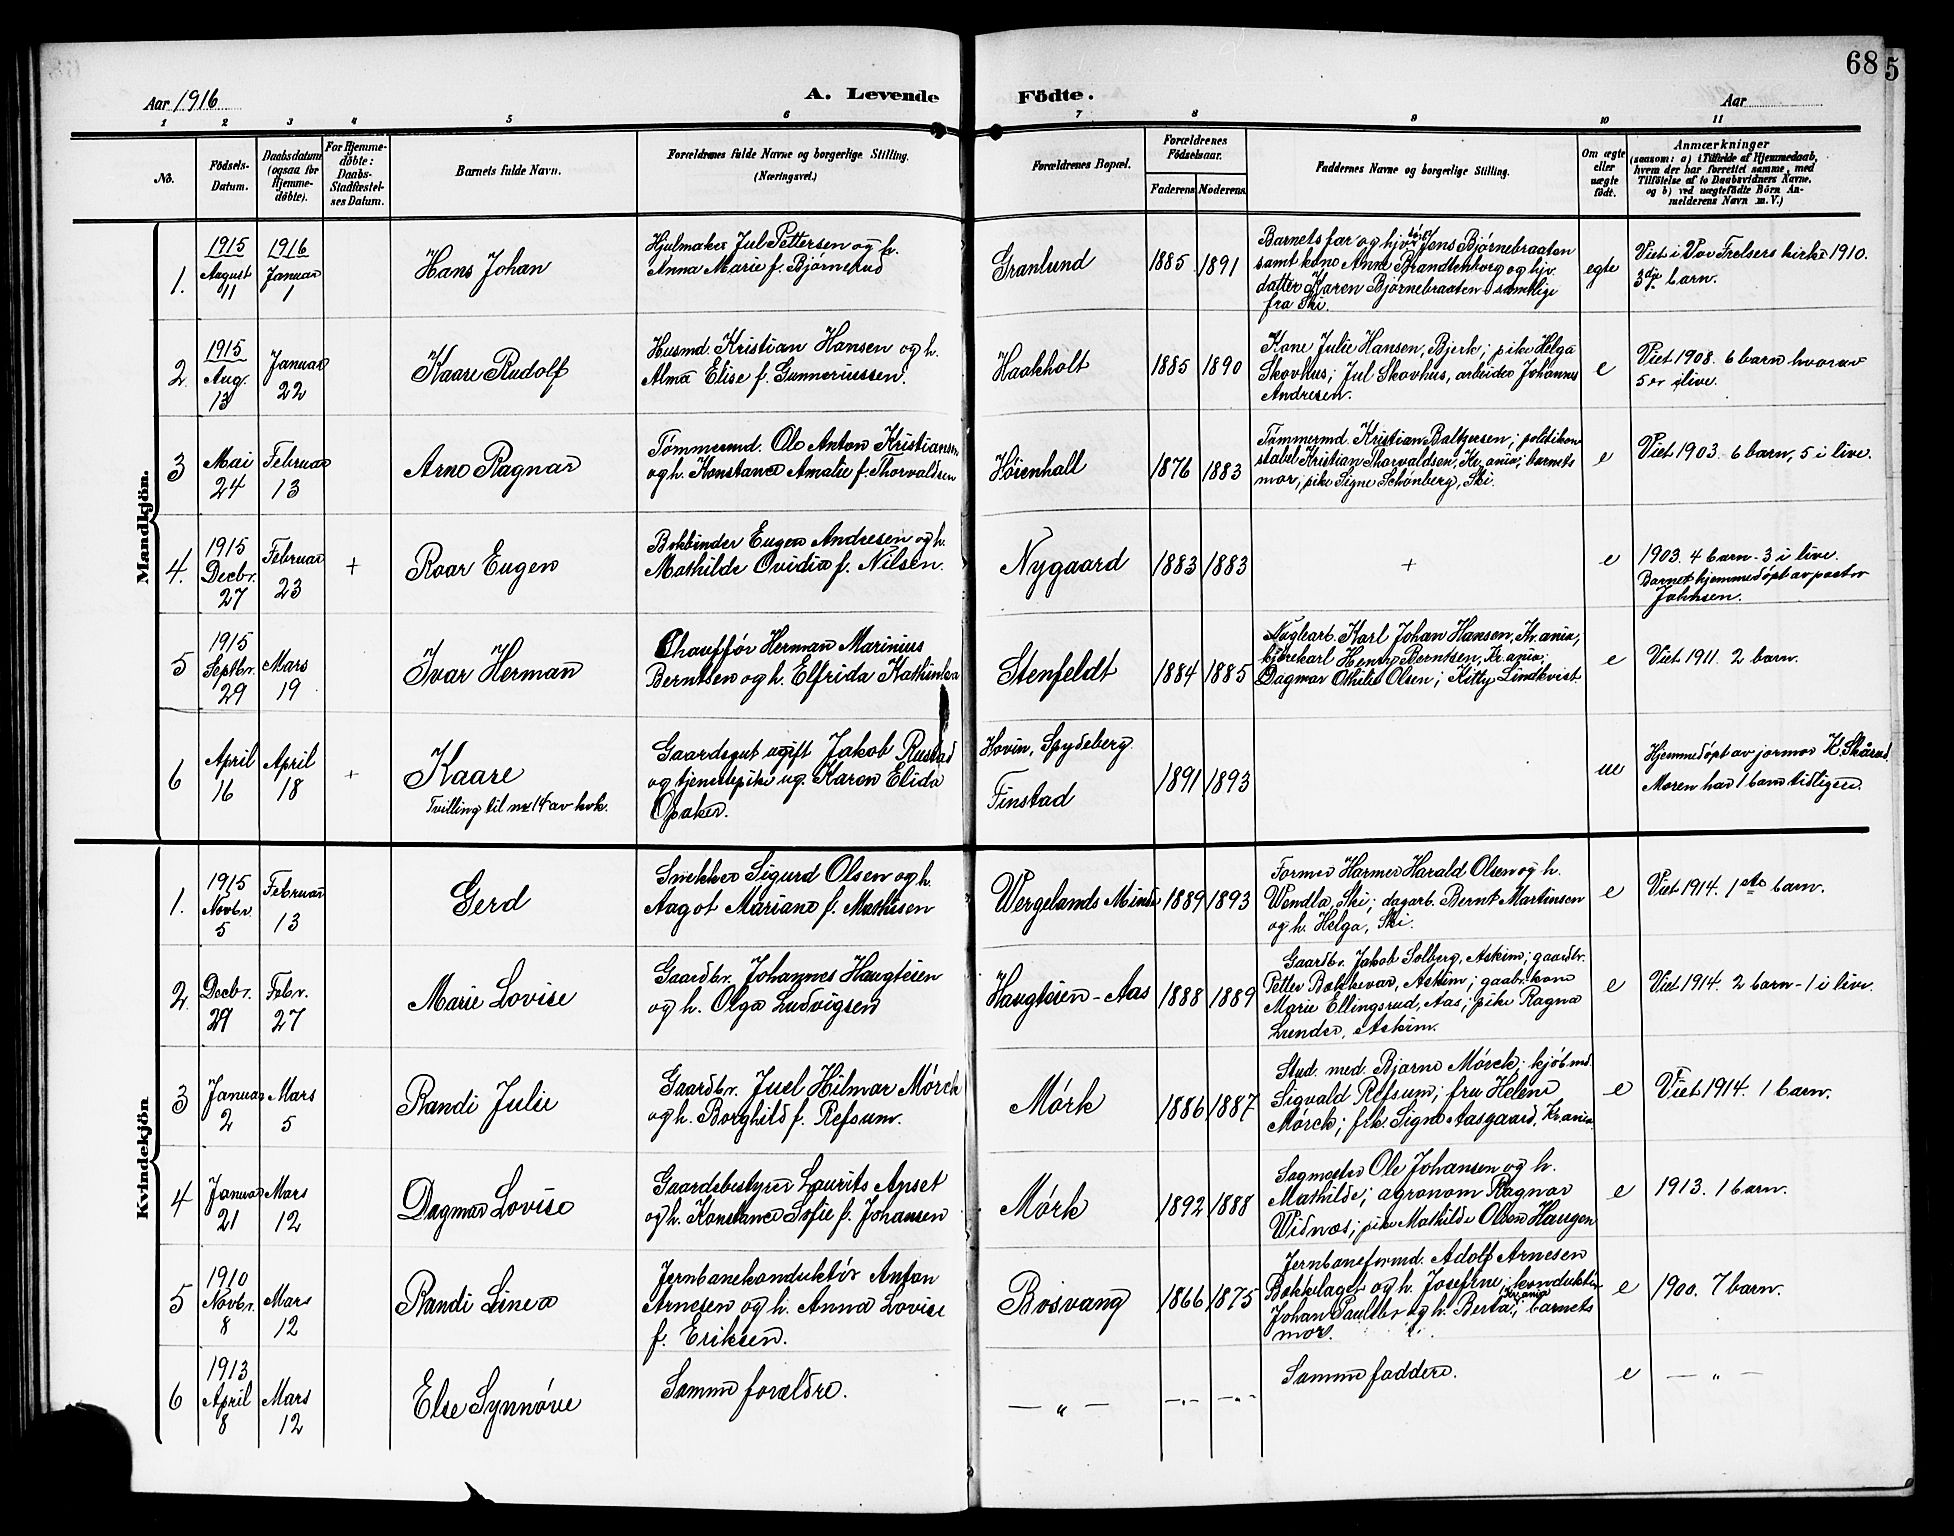 68
5
Aar 1916
A. Levende
Födte.
Aar
1 2 3 4 5 6 7 8 9 10 11
No.
Födsels-
Datum.
Daabsdatum
(ogsaa for
Hjemme-
döbte).
For Hjemme-
döbte:
Daabs-
Stadfæstel-
ses Datum.
Barnets fulde Navn.
Forældrenes fulde Navne og borgerlige Stilling.
(Næringsvei.)
Forældrenes Bopæl.
Forældrenes
Födselsaar.
Faderens Moderens
Faddernes Navne og borgerlige Stilling.
Om ægte
eller
uægte
födt.
Anmærkninger
(saasom: a) i Tilfælde af Hjemmedaab,
hvem der har forrettet samme, med
Tilföielse af to Daabsvidners Navne,
og b) ved uægtefödte Börn An-
melderens Navn m. V.)
Mandkjön.
1.
1915
August
11
1916
Januar
1
Hans Johan
Hjulmaker Jul Pettersen og h.
Anna Marie f. Bjørnerud
Granlund
1885 1891
Barnets far og hjv. Jens Bjørnebraaten
samt kone Anna Brandtenborg og hjv.
datter Maren Bjørnebraaten samtlige
fra Ski.
egte
Viet i Vor Frelsers kirke 1910.
3dje barn.
2.
1915
Aug.
13
Januar
22
Kaare Rudolf
Husmd. Kristian Hansen og h.
Alma Elise f. Gunneriussen.
Haakholt
1885 1890
Kone Julie Hansen, Bjerk; pike Helga
Skovhus; Jul Skovhus, arbeider Johannes
Andresen.
e
Viet 1908. 6 barn hvorav
5 er i live.
3
Mai
24
Februar
13
Arne Ragnar
Tømmermd. Ole Anton Kristiansen
og h. Konstance Amalie f. Thorvaldsen
Høienhall
1876 1883
Tømmermd. Kristian Baltzersen; politikon
stabel Kristian Thorvaldsen, Kr.ania; barnets
mor; pike Signe Schønberg, Ski.
e
Viet 1903. 6 barn, 5 i live.
4.
1915
Decbr.
27
Februar
23
+
Roar Eugen
Bokbinder Eugen Andresen og h.
Mathilde Ovidia f. Nilsen.
Nygaard
1883 1883
+
e
1903. 4 barn - 3 i live.
Barnet hjemmedøpt av pastor
Jahnsen.
5
1915
Septbr.
29
Mars
19
Ivar Herman
Chauffør Herman Marinius
Berntsen og h. Elfrida Kathinka
Stenfeldt
1884 1885
Karl Johan Hansen, Kr.ania;
Henry Berntsen, Kr.ania;
Dagmar Othilie Olsen; Kitty Lindkvist.
e
Viet 1911. 2 barn.
6
April
16
April
18
+
Kaare
Tvilling til nr 14 av kvk.
Gaardsgut ugift Jakob Rustad
og tjenestepike ug. Karen Elida
Opaker.
Hovin, Spydeberg.
Finstad
1891 1893
u
Hjemmedøpt av jormor K. Skårud
Moren har 1 barn tidligere.
Kvindekjön
1.
1915
Novbr.
5
Februar
13
Gerd
Snekker Sigurd Olsen og h.
Aagot Mariane f. Mathisen
Wergelands Minde
1889 1893
Former Harmer Harald Olsen og h.
Wendla, Ski; dagarb. Bernt Martinsen
og h. Helga, Ski.
e
Viet 1914. 1ste barn.
2.
Decbr.
29
Febr.
27
Marie Lovise
Gaardbr. Johannes Haugteien
og h. Olga Ludvigsen
Haugteien - Aas
1888 1889
Gaardbr. Jakob Solberg, Askim; gaardbr.
Petter Bakkevar, Askim; gaabr.kone
Marie Ellingsrud, Aas; pike Ragna
Lunder, Askim.
e
Viet 1914. 2 barn - 1 i live.
3
Januar
2
Mars
5
Randi Julie
Gaardbr. Juel Hilmar Mørck
og h. Borghild f. Refsum.
Mørk
1886 1887
Stud. med. Bjarne Mørck; kjøbmd.
Sigvald Refsum; fru Helene
Mørck; frk. Signe Aasgaard, Kr.ania
e
Viet 1914. 1 barn.
4
Januar
21
Mars
12
Dagmar Lovise
Gaardsbestyrer Laurits Apset
og h. Konstance Sofie f. Johansen
Mørk
1892 1888
Sagmester Ole Johansen og h.
Mathilde; agronom Ragnar
Widnæs; pike Mathilde Olsen Haugen
e
1913. 1 barn.
5
1910
Novbr.
8
Mars
12
Randi Linea
Jernbanekonduktør Anton
Arnesen og h. Anna Lovise
f. Eriksen.
Rosvang
1866 1875
Jernbaneformd. Adolf Arnesen
Bækkelaget og h. Josefine; konduktør
Johan Paulsen og h. Berta, Kr.ania; barnets
mor.
e
1900. 7 barn.
6
1913
April
8
Mars
12
Else Synnøve
Samme forældre.
— „ —
—„— —„—
Samme faddere.
e
— „ —